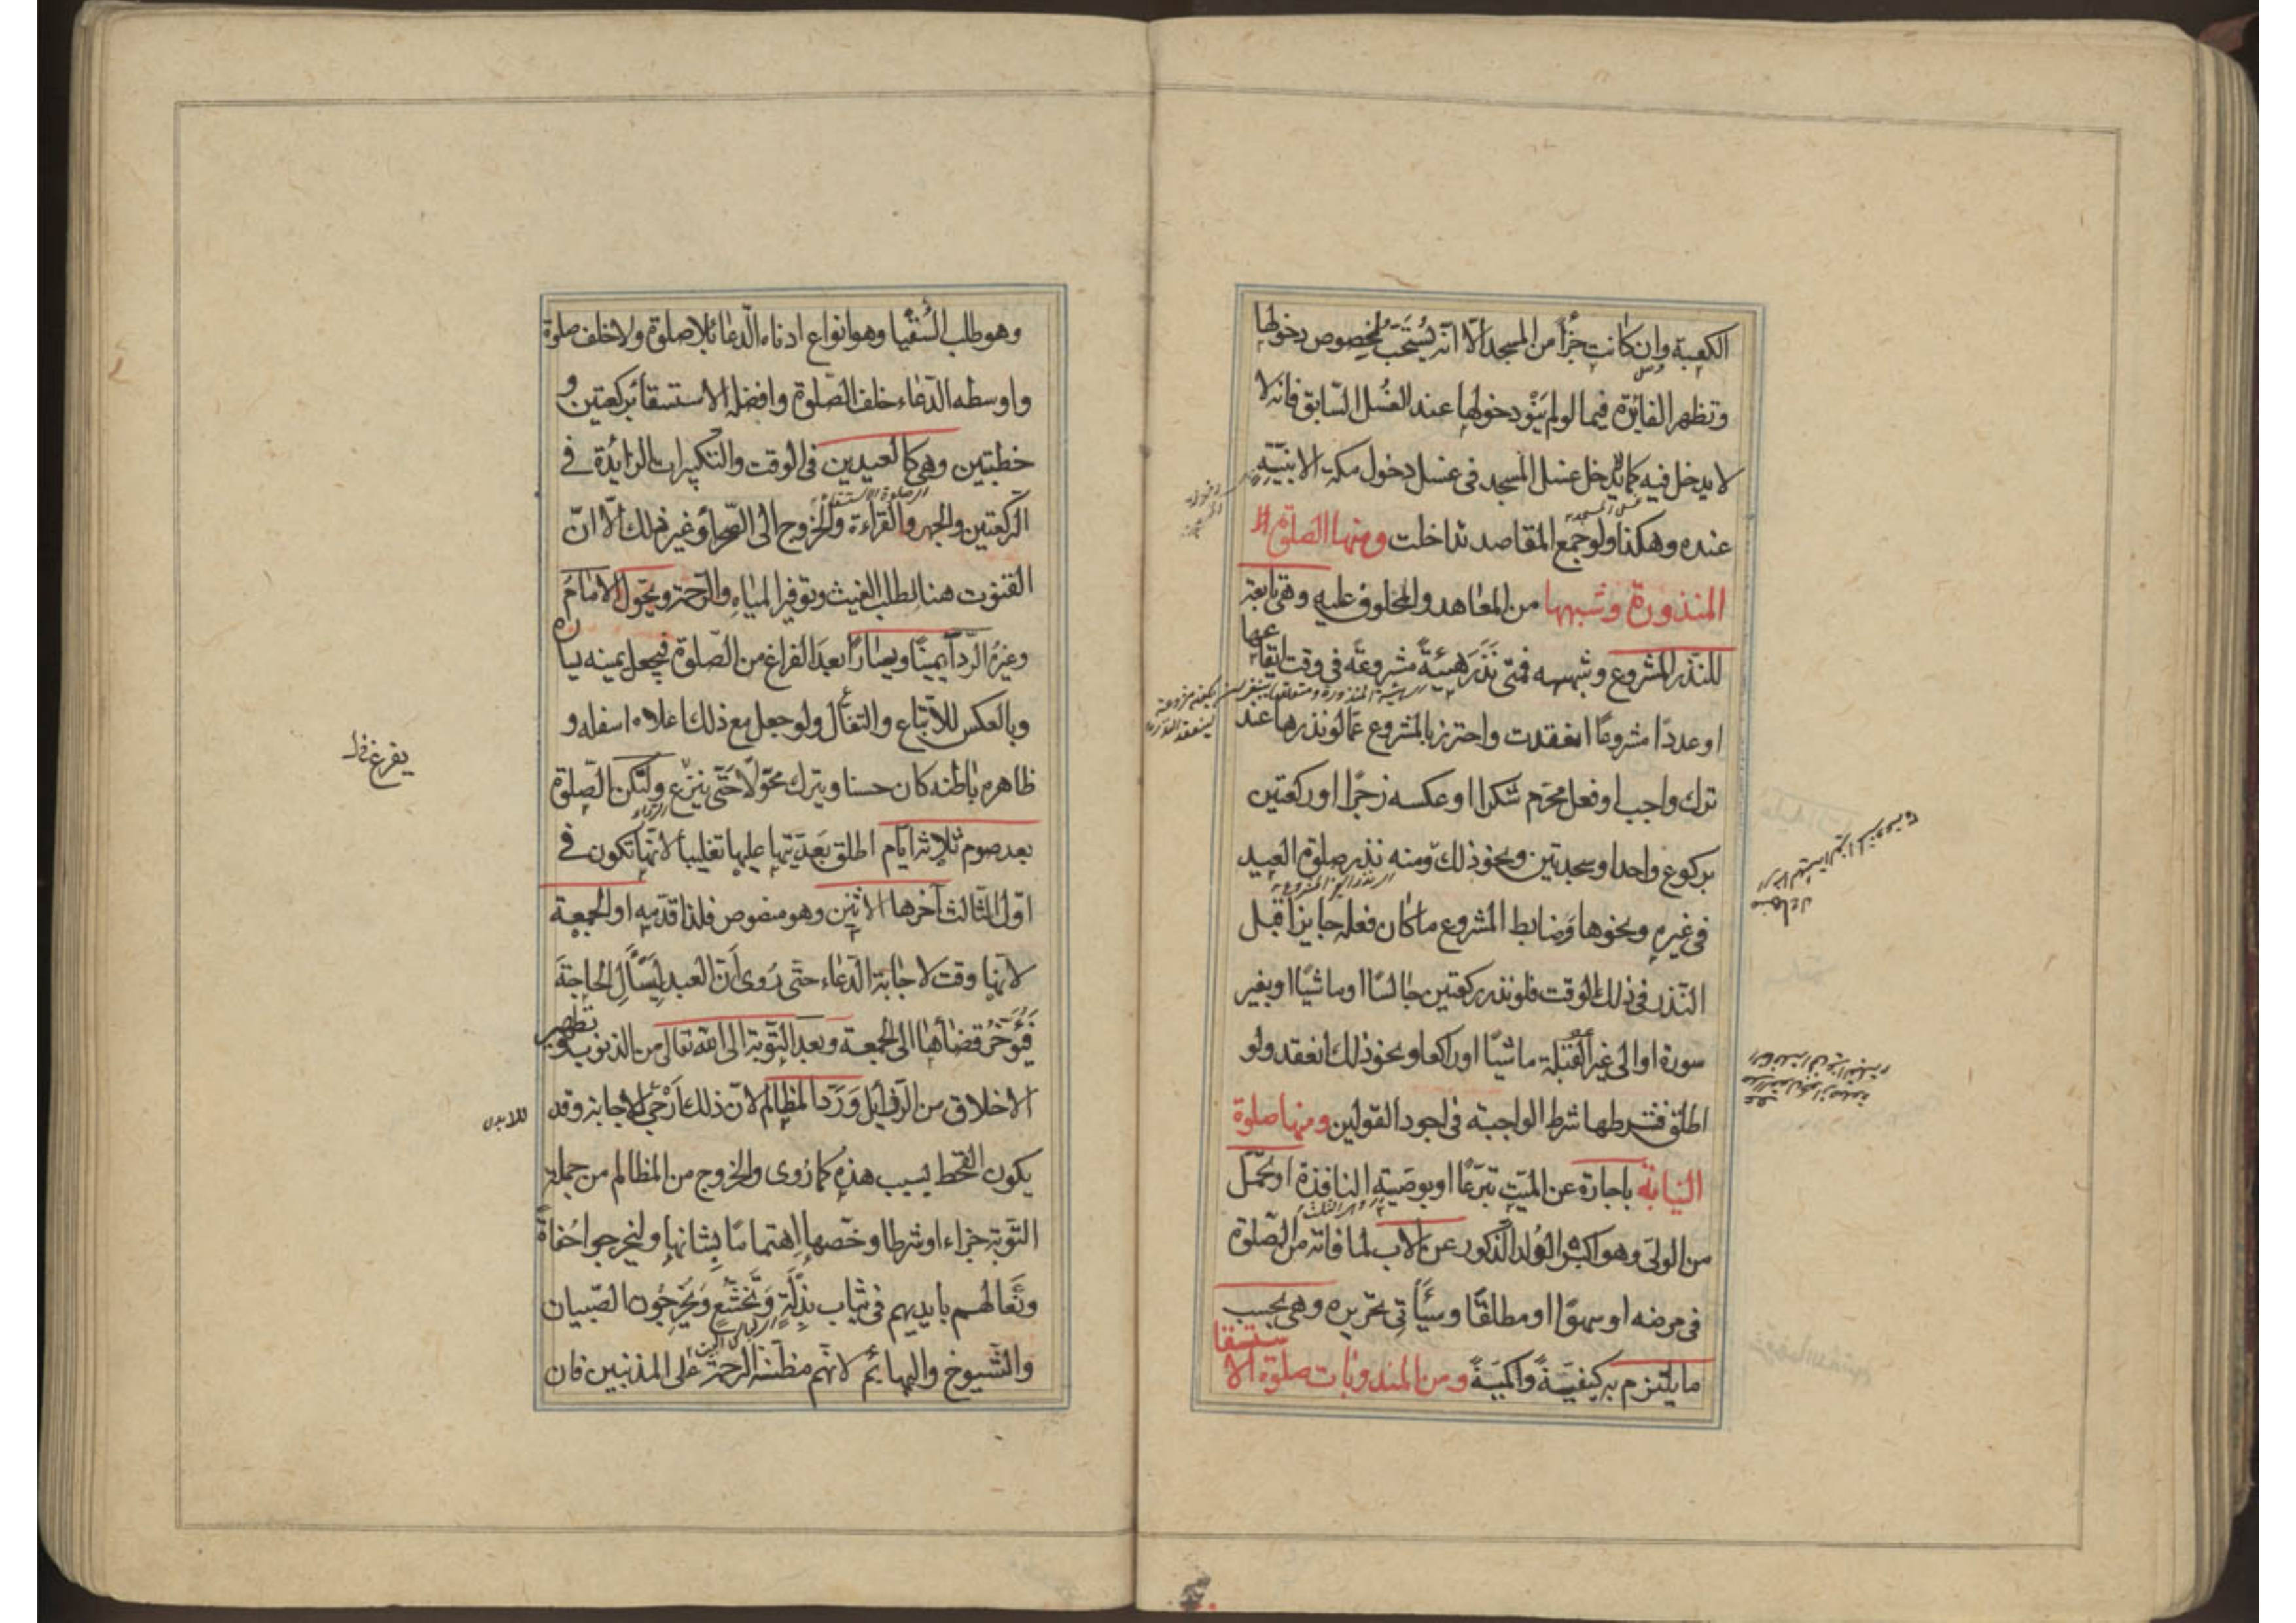 الكعبة وان كانت جزأ من المسجد الا انه يستحب لخصوص دخولها
وتظهر الفايدة فيما لو لم ينو دخولها عند الغسل السابق فانه لا
لا يدخل فيه كما لا يدخل غسل المسجد في غسل دخول مكة الا بنيته
عنده وهكذا ولو جمع المقاصد تداخلت ومنها الصلوة
المنذورة وشبهها من المعاهد والمحلوف عليه وهي تابعة
للنذر المشروع وشبهه فمتى نذر هيئة مشروعة في وقت ايقاعها
او عددا مشروعا انعقدت واحترز بالمشروع عما لو نذرها عند
ترك واجب او فعل محرم شكرا او عكسه زجرا او ركعتين
بركوع واحد او سجدتين ونحو ذلك ومنه نذر صلوة العيد
في غيره ونحوها وضابط المشروع ما كان فعله جايزا قبل
النذر في ذلك الوقت فلو نذر ركعتين جالسا او ماشيا او بغير
سورة او الى غير القبلة ماشيا او راكعا ونحو ذلك انعقد ولو
اطلق فشرطها شرط الواجبة في اجود القولين ومنها صلوة
النيابة باجارة عن الميت تبرعا او بوصيته النافذة او تحمل
من الولي وهو اكبر الولد الذكور عن الاب لما فاته من الصلوة
في مرضه او سهوا او مطلقا وسيأتي تحريره وهي بحسب
ما يلتزم به كيفية وكمية ومن المندوبات صلوة الاستسقا
وهو طلب السقيا وهو انواع ادناه الدعا بلا صلوة ولا خلف صلوة
واوسطه الدعاء خلف الصلوة وافضله الاستسقأ بركعتين و
خطبتين وهي كالعيدين في الوقت والتكبيرات الزايدة في
الركعتين والجهر والقراءة والخروج الى الصحرأ وغير ذلك الا ان
القنوت هنا لطلب الغيث وتوفر المياه والرحمة ويحول الامام
وغيره الردأ يمينا ويسارا بعد الفراغ من الصلوة فيجعل يمينه يساره
وبالعكس للاتباع والتفأل ولو جعل مع ذلك اعلاه اسفله و
ظاهره باطنه كان حسنا ويترك محولا حتى ينزع ولتكن الصلوة
بعد صوم ثلاثة ايام اطلق بعديتها عليها تغليبا لانها تكون في
اول الثالث آخرها الاثنين وهو منصوص فلذا قدمه او الجمعة
لانها وقت لاجابة الدعاء حتى روى ان العبد ليسأل الحاجة
فيؤخر قضأها الى الجمعة وبعد التوبة الى الله تعالى من الذنوب وتطهير
الاخلاق من الرذايل ورد المظالم لان ذلك ارجى للاجابة وقد
يكون القحط بسبب هذه كما روى والخروج من المظالم من جملة
التوبة جزاء او شرطا وخصها اهتماما بشانها وليخرجوا حفاة
ونعالهم بايديهم في ثياب بذلة وتخشع ويخرجون الصبيان
والشيوخ والبهايم لانهم مظنة الرحمة على المذنبين فان